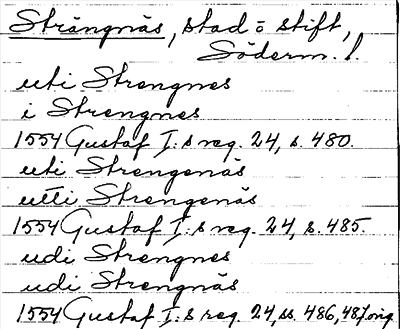 Strängnäs, stad o stift,
Söderm. l.
uti Strengnes
i Strengnes
1554 Gustaf I:s reg. 24, s. 480.
uti Strengenäs
utti Strengenäs
1554 Gustaf I:s reg. 24, s. 485.
udi Strengnes
udi Strengnäs
1554 Gustaf I:s reg. 24, ss. 486, 487 orig.